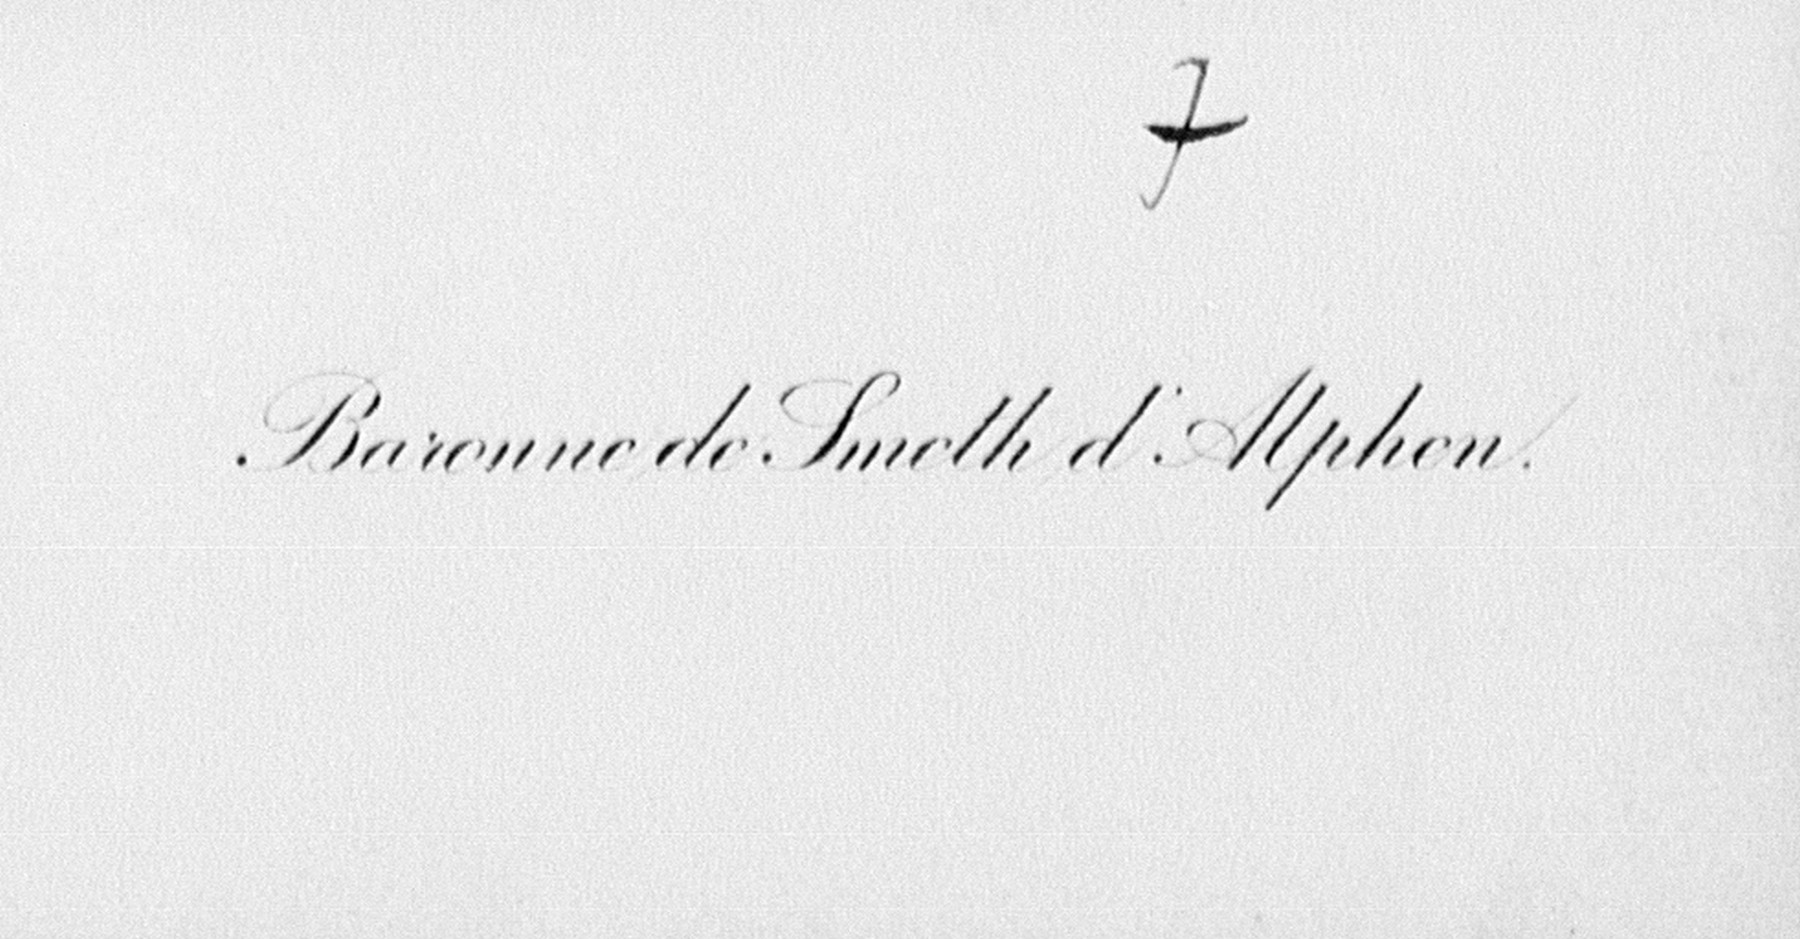 Baronne de Smeth d'Alphen.